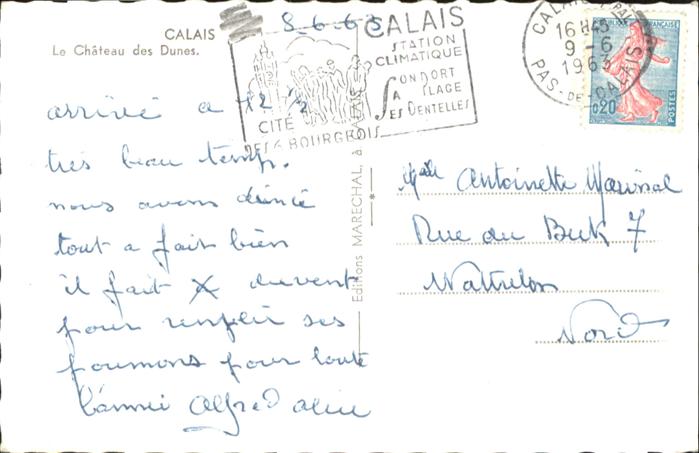 CALAIS
Le Château des Dunes.
8 6 63
CALAIS
STATION
CLIMATIQUE
SON PORT
SA PLAGE
SES DENTELLES
CITÉ
DES 6 BOURGEOIS
CALAIS
16H45
9-6
1963
PAS-DE-CALAIS
FRANÇAISE
0,20
POSTES
Editions MARECHAL, à CALAIS
arrivé a 12 ½
très beau temp.
nous avons diné
tout a fait bien
il fait du vent
pour remplir ses
poumons pour toute
l'année Alfred aline
Antoinette
Rue du Buk 7
Wattrelos
Nord